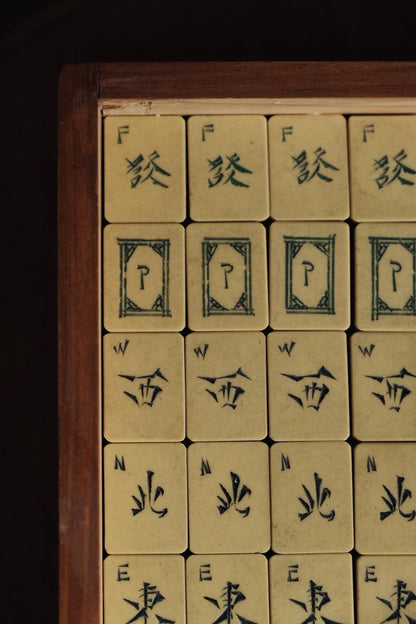 F F F F
發 發 發 發
P P P P
W W W W
西 西 西 西
N N N N
北 北 北 北
E E E E
東 東 東 東